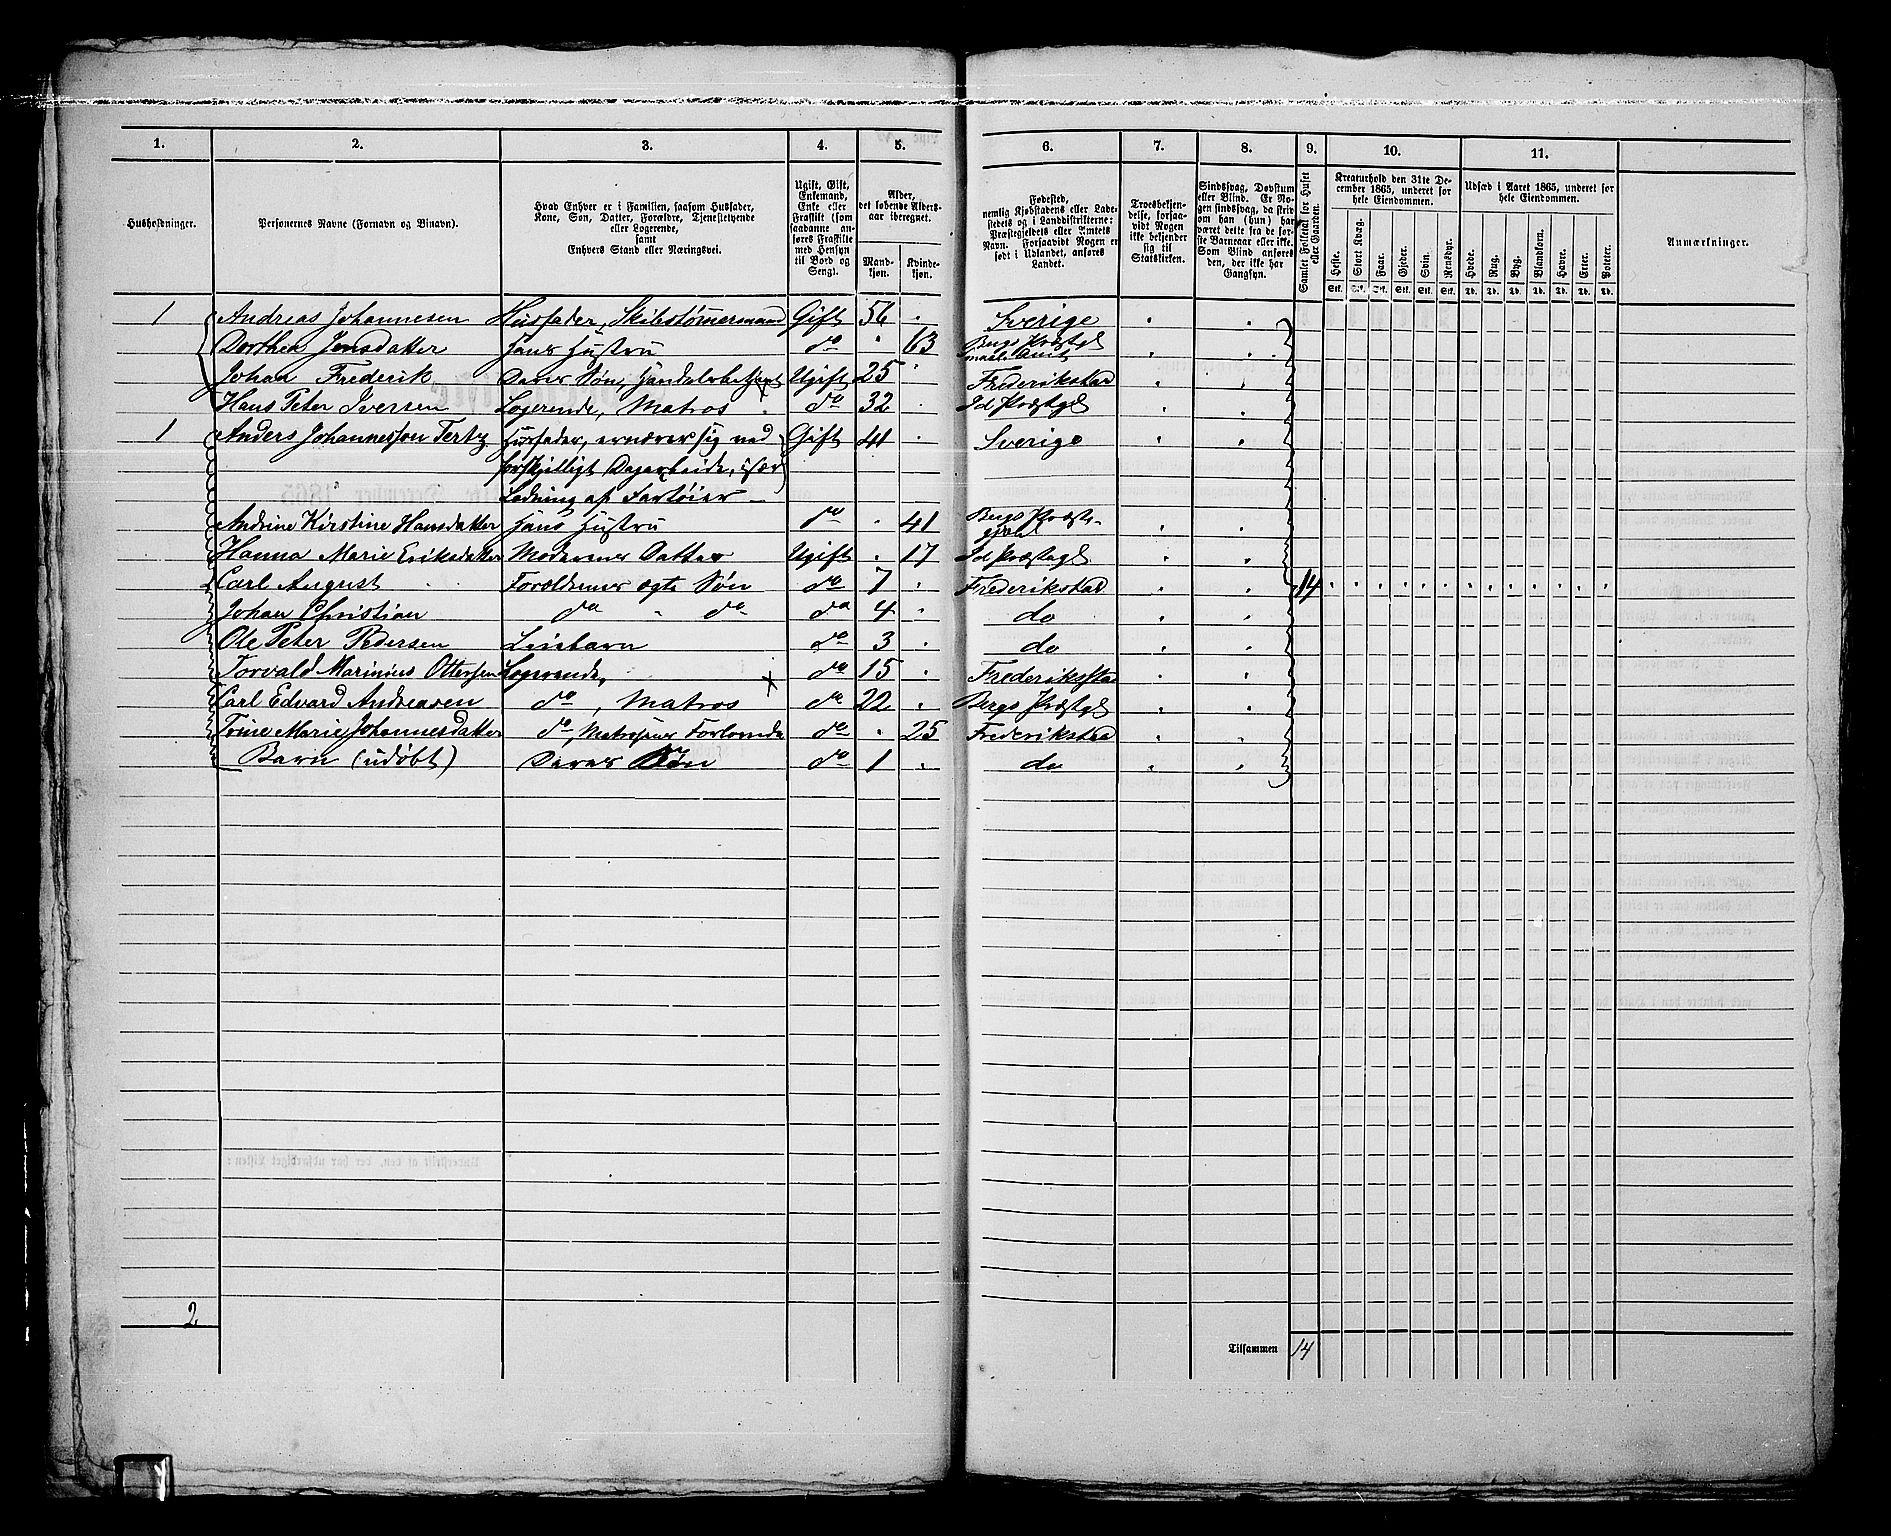 1. 2. 3. 4. 5. 6. 7. 8. 9. 10. 11.
Husholdninger.
Personernes Navne (Fornavn og Binavn).
Hvad Enhver er i Familien, saasom Husfader,
Kone, Søn, Datter, Forældre, Tjenestetyende
eller Logerende,
samt
Enhvers Stand eller Næringsvei.
Ugift, Gift,
Enkemand,
Enke eller
Fraskilt (som
saadanne an-
føres Fraskilte
med Hensyn
til Bord og
Seng).
Alder,
det løbende Alders-
aar iberegnet.
Mand-
kjøn.
Kvinde-
kjøn.
Fødested,
nemlig Kjøbstadens eller Lade-
stedets og i Landdistrikterne:
Præstegjeldets eller Amtets
Navn. Forsaavidt Nogen er
født i Udlandet, anføres
Landet.
Troesbekjen-
delse, forsaa-
vidt Nogen
ikke bekjender
sig til
Statskirken.
Sindssvag, Døvstum
eller Blind. Er No-
gen sindssvag, da skriv
om han (hun) har
været dette fra de før-
ste Barneaar eller ikke.
Som Blind anføres
den, der ikke har
Gangsyn.
Samlet Folketal for Huset
eller Gaarden.
Kreaturhold den 31te De-
cember 1865, underet for
hele Eiendommen.
Heste. Stort Kvæg. Faar. Gjeder. Svin. Rensdyr.
Stk. Stk. Stk. Stk. Stk. Stk.
Udsæd i Aaret 1865, underet for
hele Eiendommen.
Hvede. Rug. Byg. Blandkorn. Havre. Erter. Poteter.
Td. Td. Td. Td. Td. Td. Td.
Anmærkninger.
1 Andreas Johannesen Husfader, Skibstømermand Gift 56 Sverige
Dorthea Jensdatter Hans Hustru do 63 Bergs Præstgl
Johan Frederik Deres Søn, Ugift 25 Frederikstad
Hans Peter Iversen Logerende, Matros do 32 Id Præstgl
1 Anders Johannesson Husfader, ernærer sig ved Gift 41 Sverige
forskjelligt Dagarbeide, især
Ladning af Fartøier
Andrine Kirstine Hansdatter Hans Hustru do 41 Bergs Præste-
gjeld
Hanna Marie Eriksdatter Moderens Datter Ugift 17 Id Præstegl
Carl August Forældrenes ægte Søn do 7 Frederikstad 14
Johan Christian do do do 4 do
Ole Peter Pedersen do 3 do
Torvald Marinius Ottersen Logerende, do 15 Frederiksstad
Carl Edvard Andreasen do, Matros do 22 Bergs Præstgl
Trine Marie Johannesdatter do, Forlovede do 25 Frederikstad
Barn (udøbt) Deres Søn do 1 do
2
Tilsammen 14